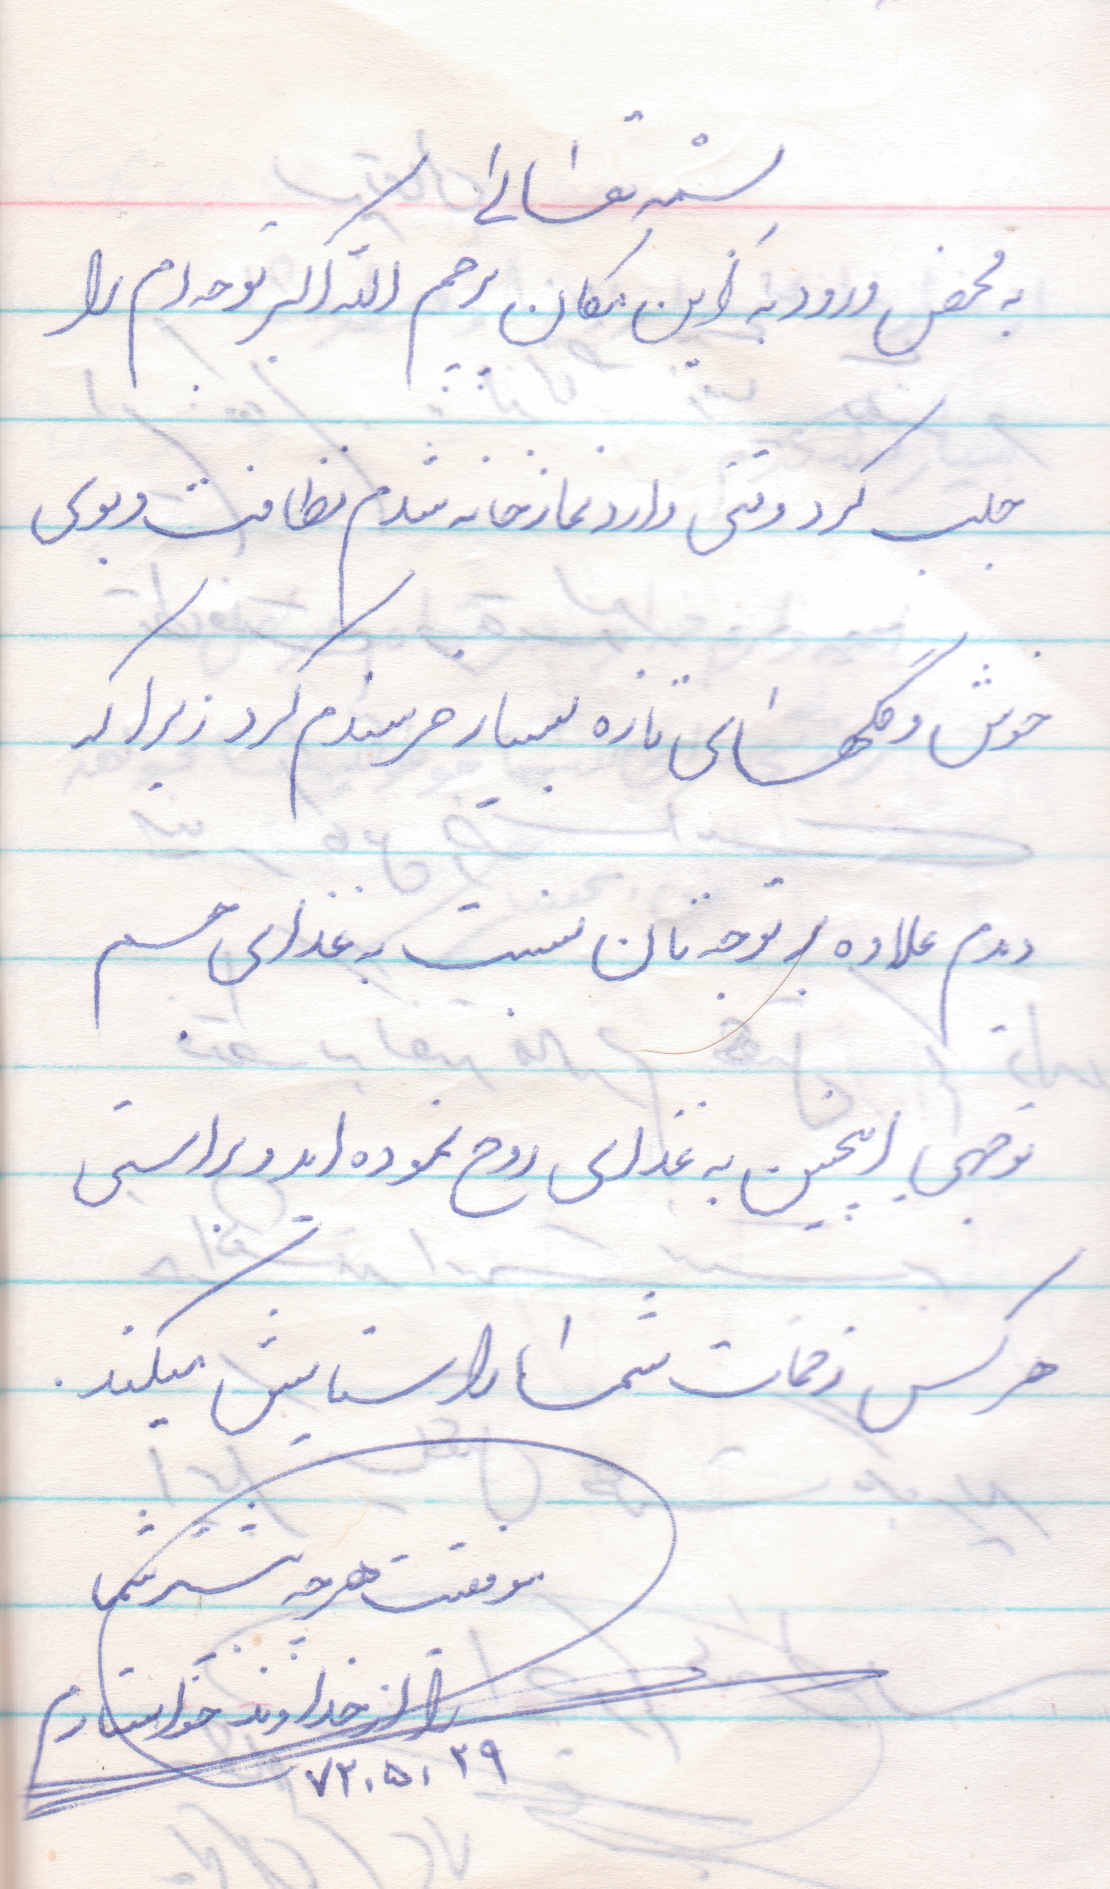 بسمه تعالی
به محض ورود به این مکان پرچم الله اکبر توجه ام را
جلب کرد وقتی وارد نمازخانه شدم نظافت و بوی
خوش و گلهای تازه بسیار خرسندم کرد زیرا که
دیدم علاوه بر توجه تان نسبت به غذای جسم
توجهی اینچنین به غذای روح نموده اید و براستی
هر کس زحمات شما را ستایش میکند.
موفقیت هرچه بیشتر شما
را از خداوند خواستارم
۷۲،۵،۲۹